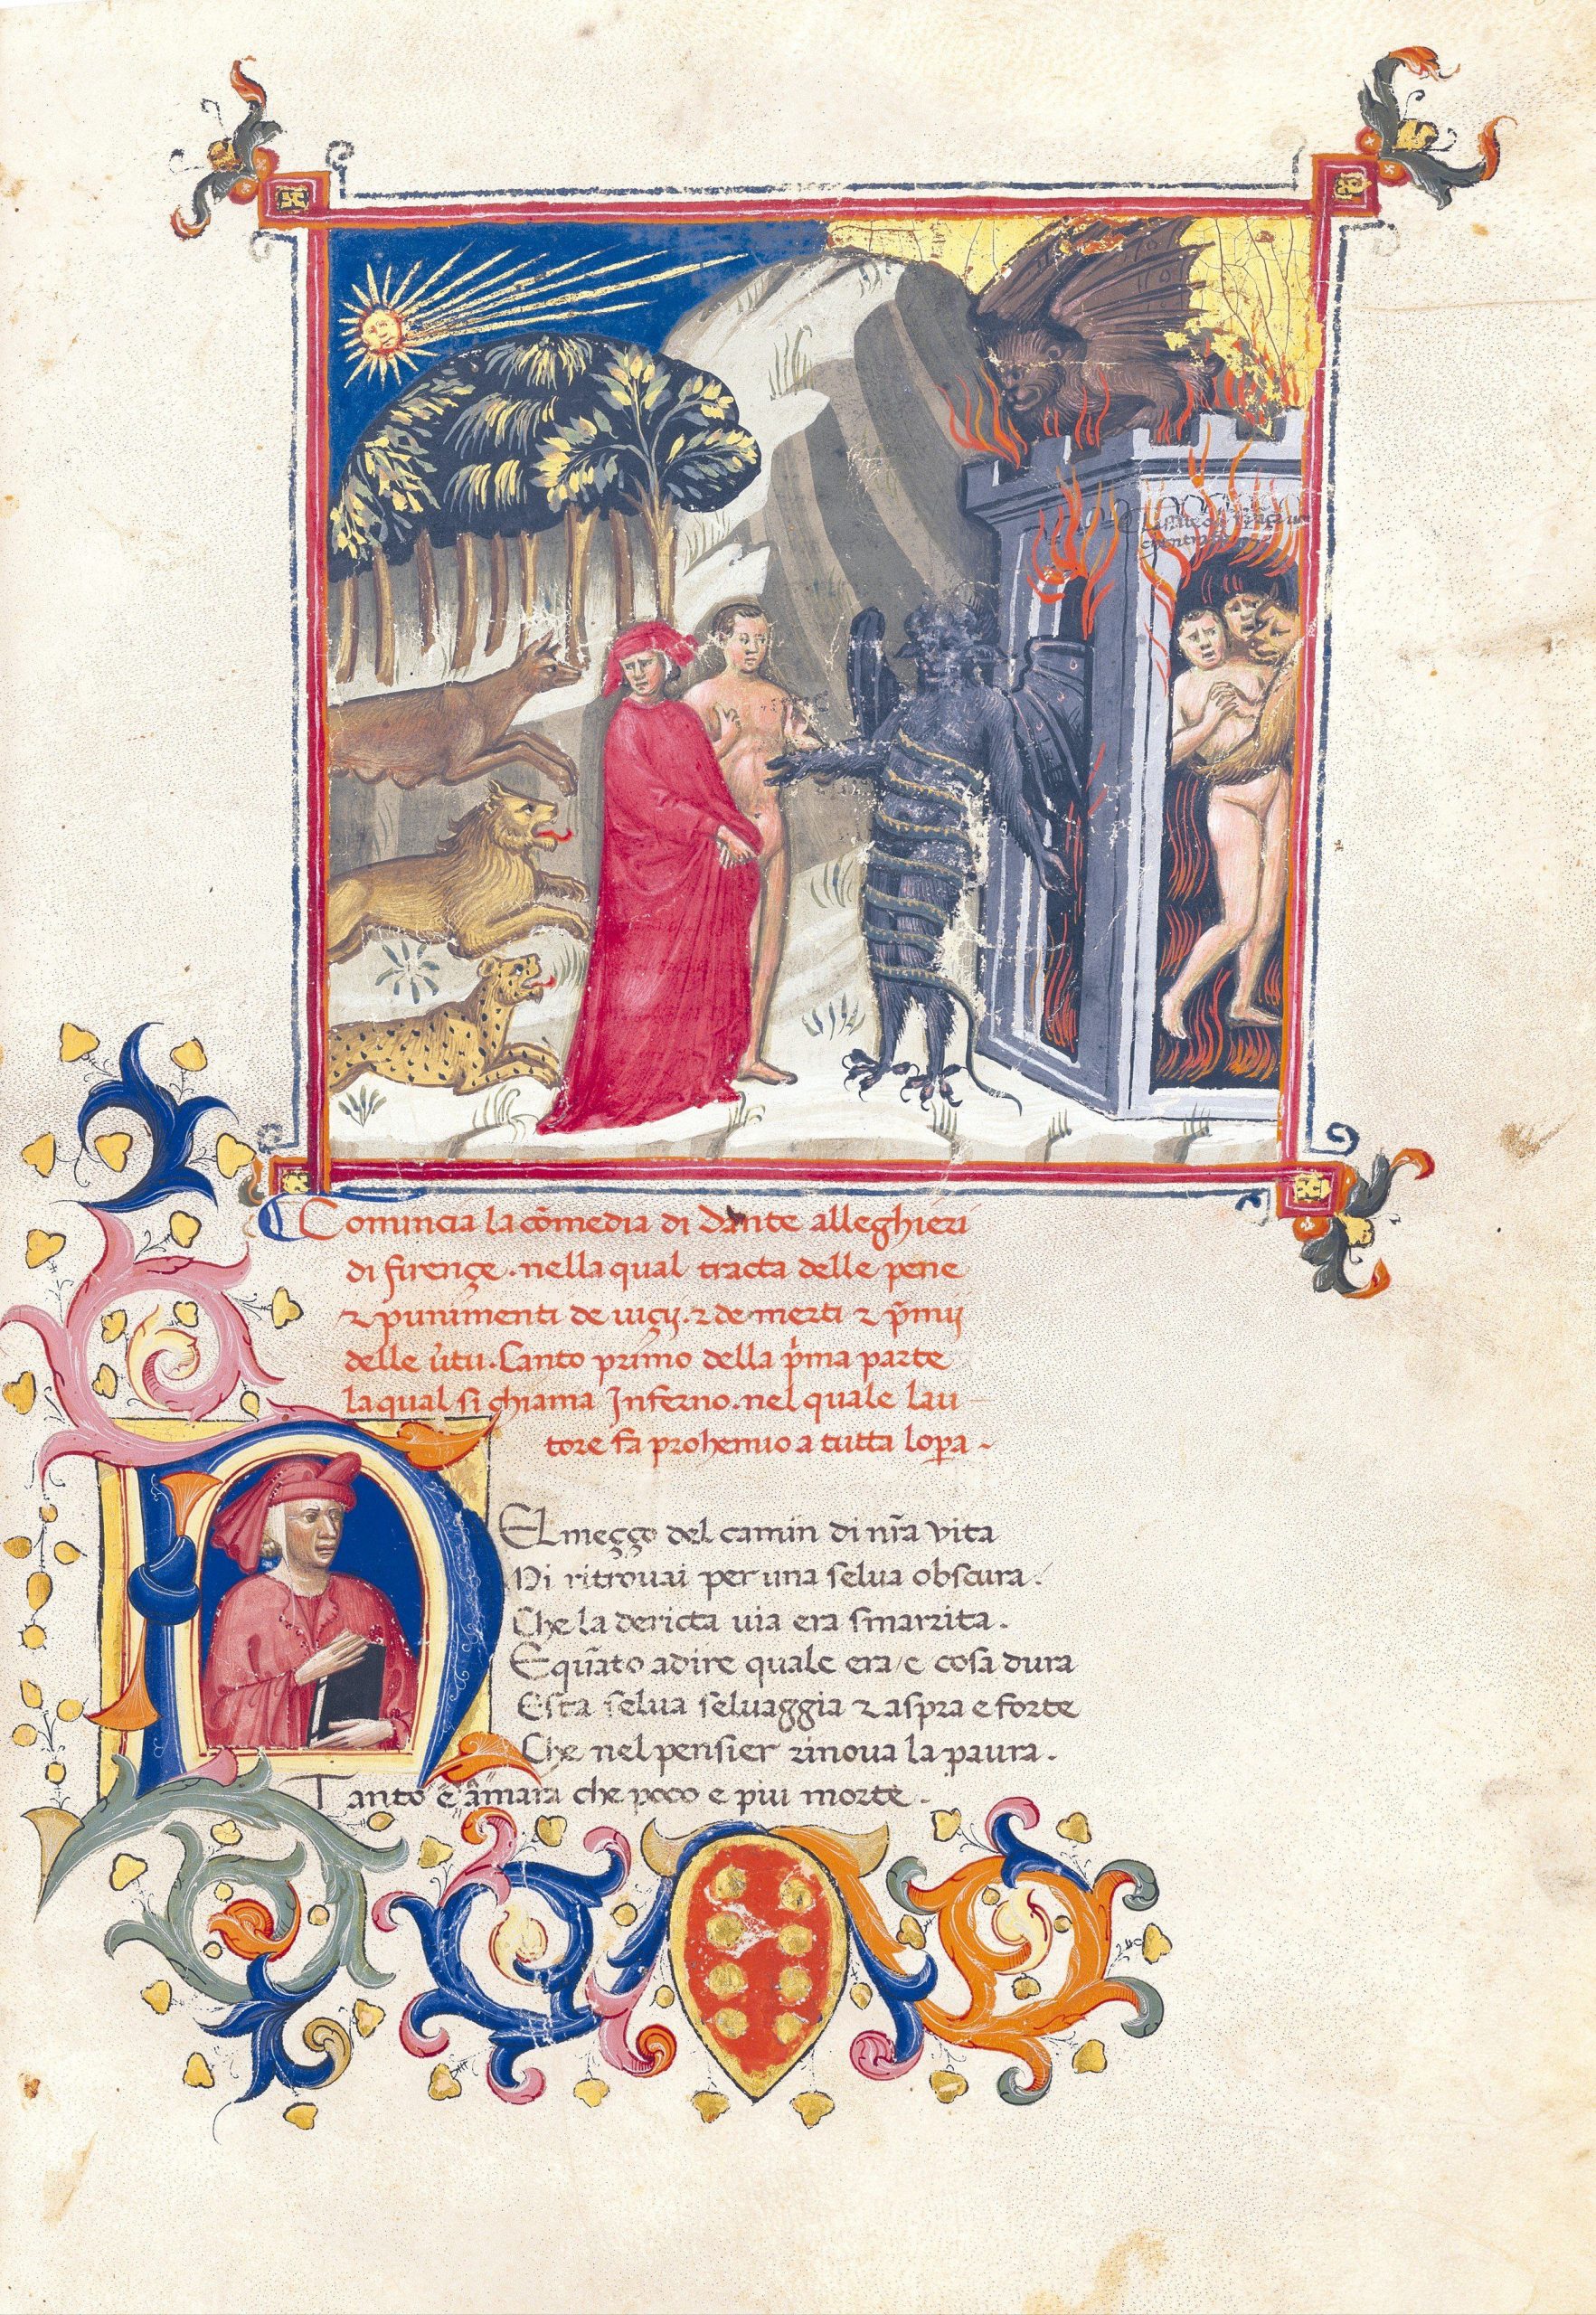 Comincia la cōmedia di Dante alleghieri
di firençe. nella qual tracta delle pene
⁊ punimenti de uiçij. ⁊ de meriti ⁊ p̄mij
delle u̓tu. Canto primo della p̓ma parte
la qual si chiama Inferno. nel quale lau
tore fa prohemio a tutta lop̲a ~
NEl meççο del camin di nr̄a vita
Mi ritrouai per una selua obscura.
Che la diricta uia era smarrita.
E quāto a dire quale era / e cosa dura
Esta selua seluaggia ⁊ aspra e forte
Che nel pensier rinoua la paura.
Tanto e amara che poco e piu morte.